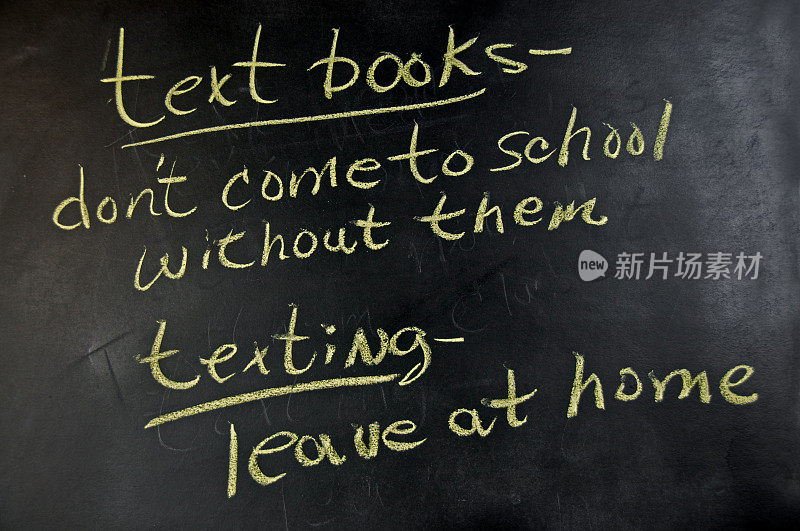 text books-
don't come to school
without them
new 新片场素材
texting-
leave at home